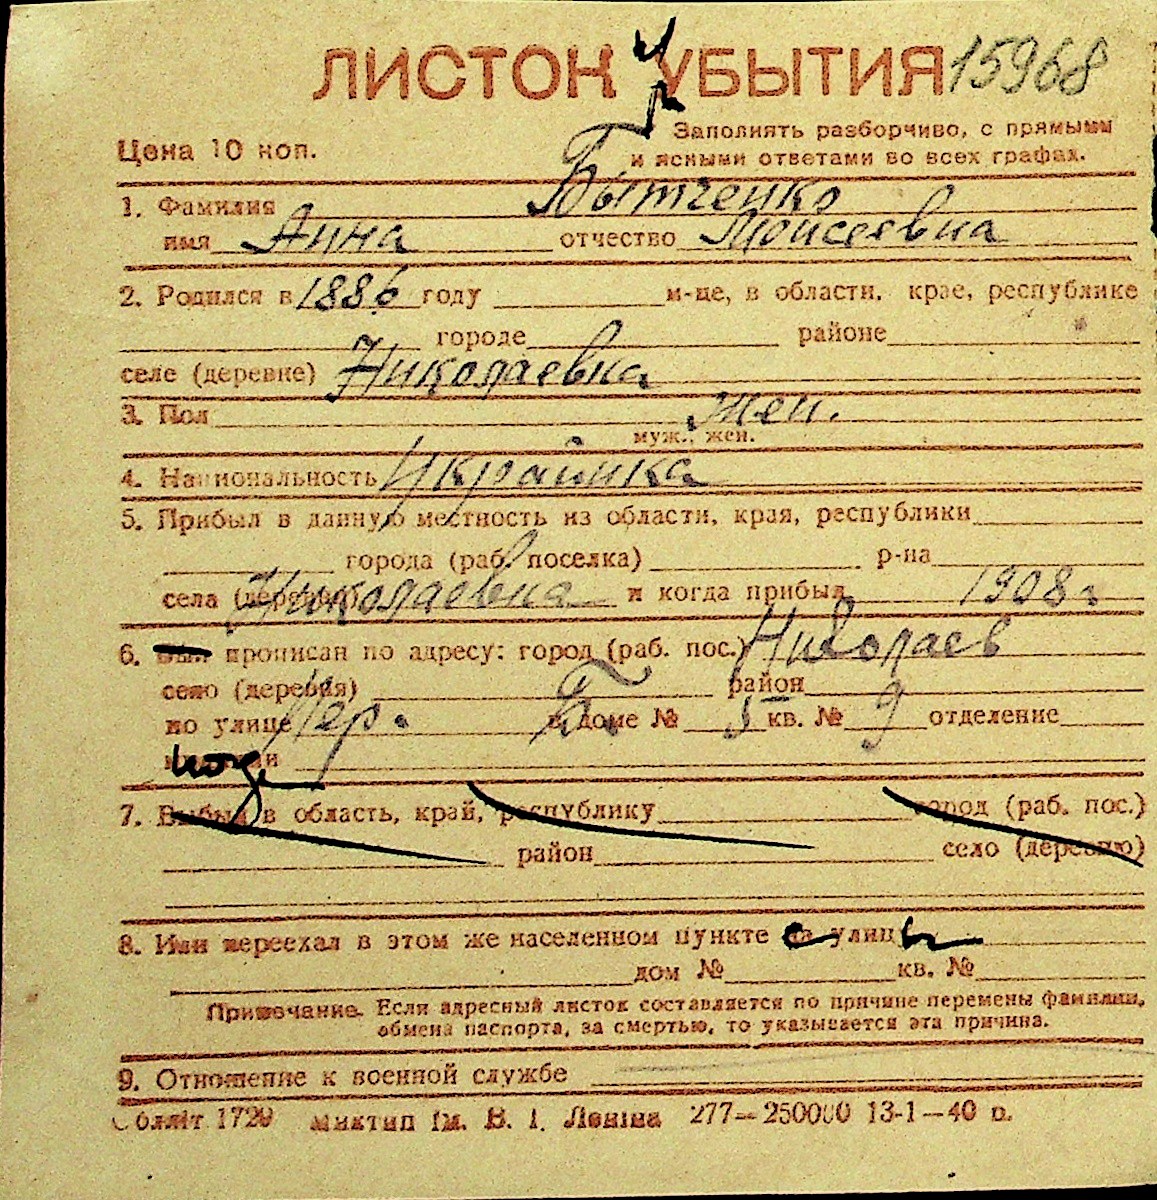 ЛИСТОК УБЫТИЯ 15968
Цена 10 коп.
Заполнять разборчиво, с прямыми
и ясными ответами во всех графах.
1. Фамилия Бытченко
имя Анна отчество Моисеевна
2. Родился в 1886 году м-це, в области, крае, республике
городе районе
селе (деревне) Николаевка
3. Пол жен.
муж., жен.
4. Национальность Украинка
5. Прибыл в данную местность из области, края, республики
города (раб. поселка) р-на
села (деревни) Николаевка и когда прибыл 1908 г
6. Был прописан по адресу: город (раб. пос.) Николаев
село (деревня) район
по улице Пер. Б. в доме № 5 кв. № 9 отделение
7. Выбыл в область, край, республику город (раб. пос.)
район село (деревню)
8. Или переехал в этом же населенном пункте на улицу
дом № кв. №
Примечание. Если адресный листок составляется по причине перемены фамилии,
обмена паспорта, за смертью, то указывается эта причина.
9. Отношение к военной службе
Обляіт 1720 Миктип ім. В. І. Леніна 277—250000 13-1—40 р.